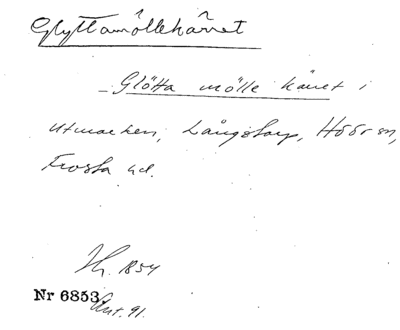 Glyttamöllekärret
- Glötta mölle käret i
utmarken, Långstorp, Höör sn,
Frosta hd.
Th. 1854
Nr 6853
Ant. 91.